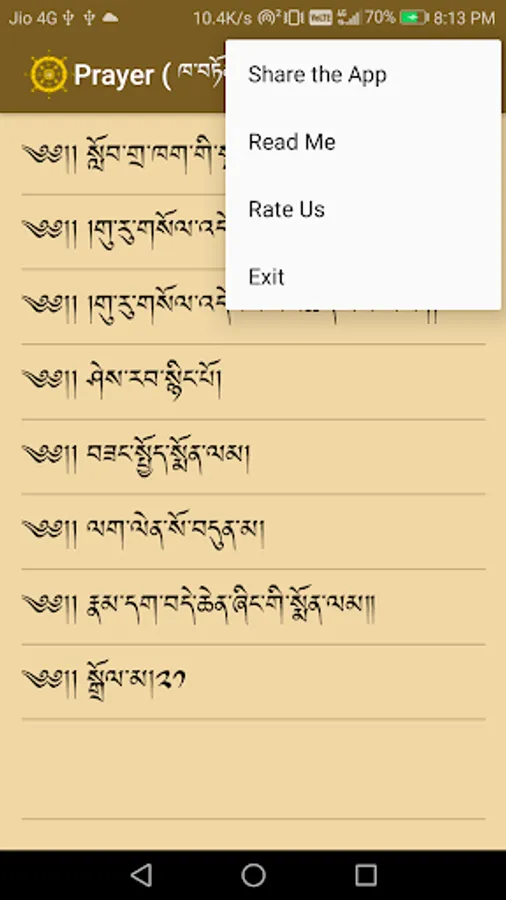 Jio 4G 10.4K/s 70% 8:13 PM
Prayer ( ཁ་བཏོ
Share the App
Read Me
Rate Us
Exit
༄༅།། སློབ་གྲྭ་ཁག་གི་
༄༅།། །གུ་རུ་གསོལ་འདེ
༄༅།། །གུ་རུ་གསོལ་འདེ
༄༅།། ཤེས་རབ་སྙིང་པོ།
༄༅།། བཟང་སྤྱོད་སྨོན་ལམ།
༄༅།། ལག་ལེན་སོ་བདུན་མ།
༄༅།། རྣམ་དག་བདེ་ཆེན་ཞིང་གི་སྨོན་ལམ།།
༄༅།། སྒྲོལ་མ།༢༡